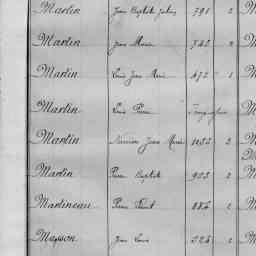 Martin Jean Baptiste 791 2 M
Martin Jean Marie 742 2 M
Martin Louis Jean Marie 472 1 M
Martin Louis Pierre M
Martin Jean Marie 1053 2 M
Martin Pierre Baptiste 903 2 M
Martineau Pierre 886 2 M
Masson Jean Louis 226 2 M